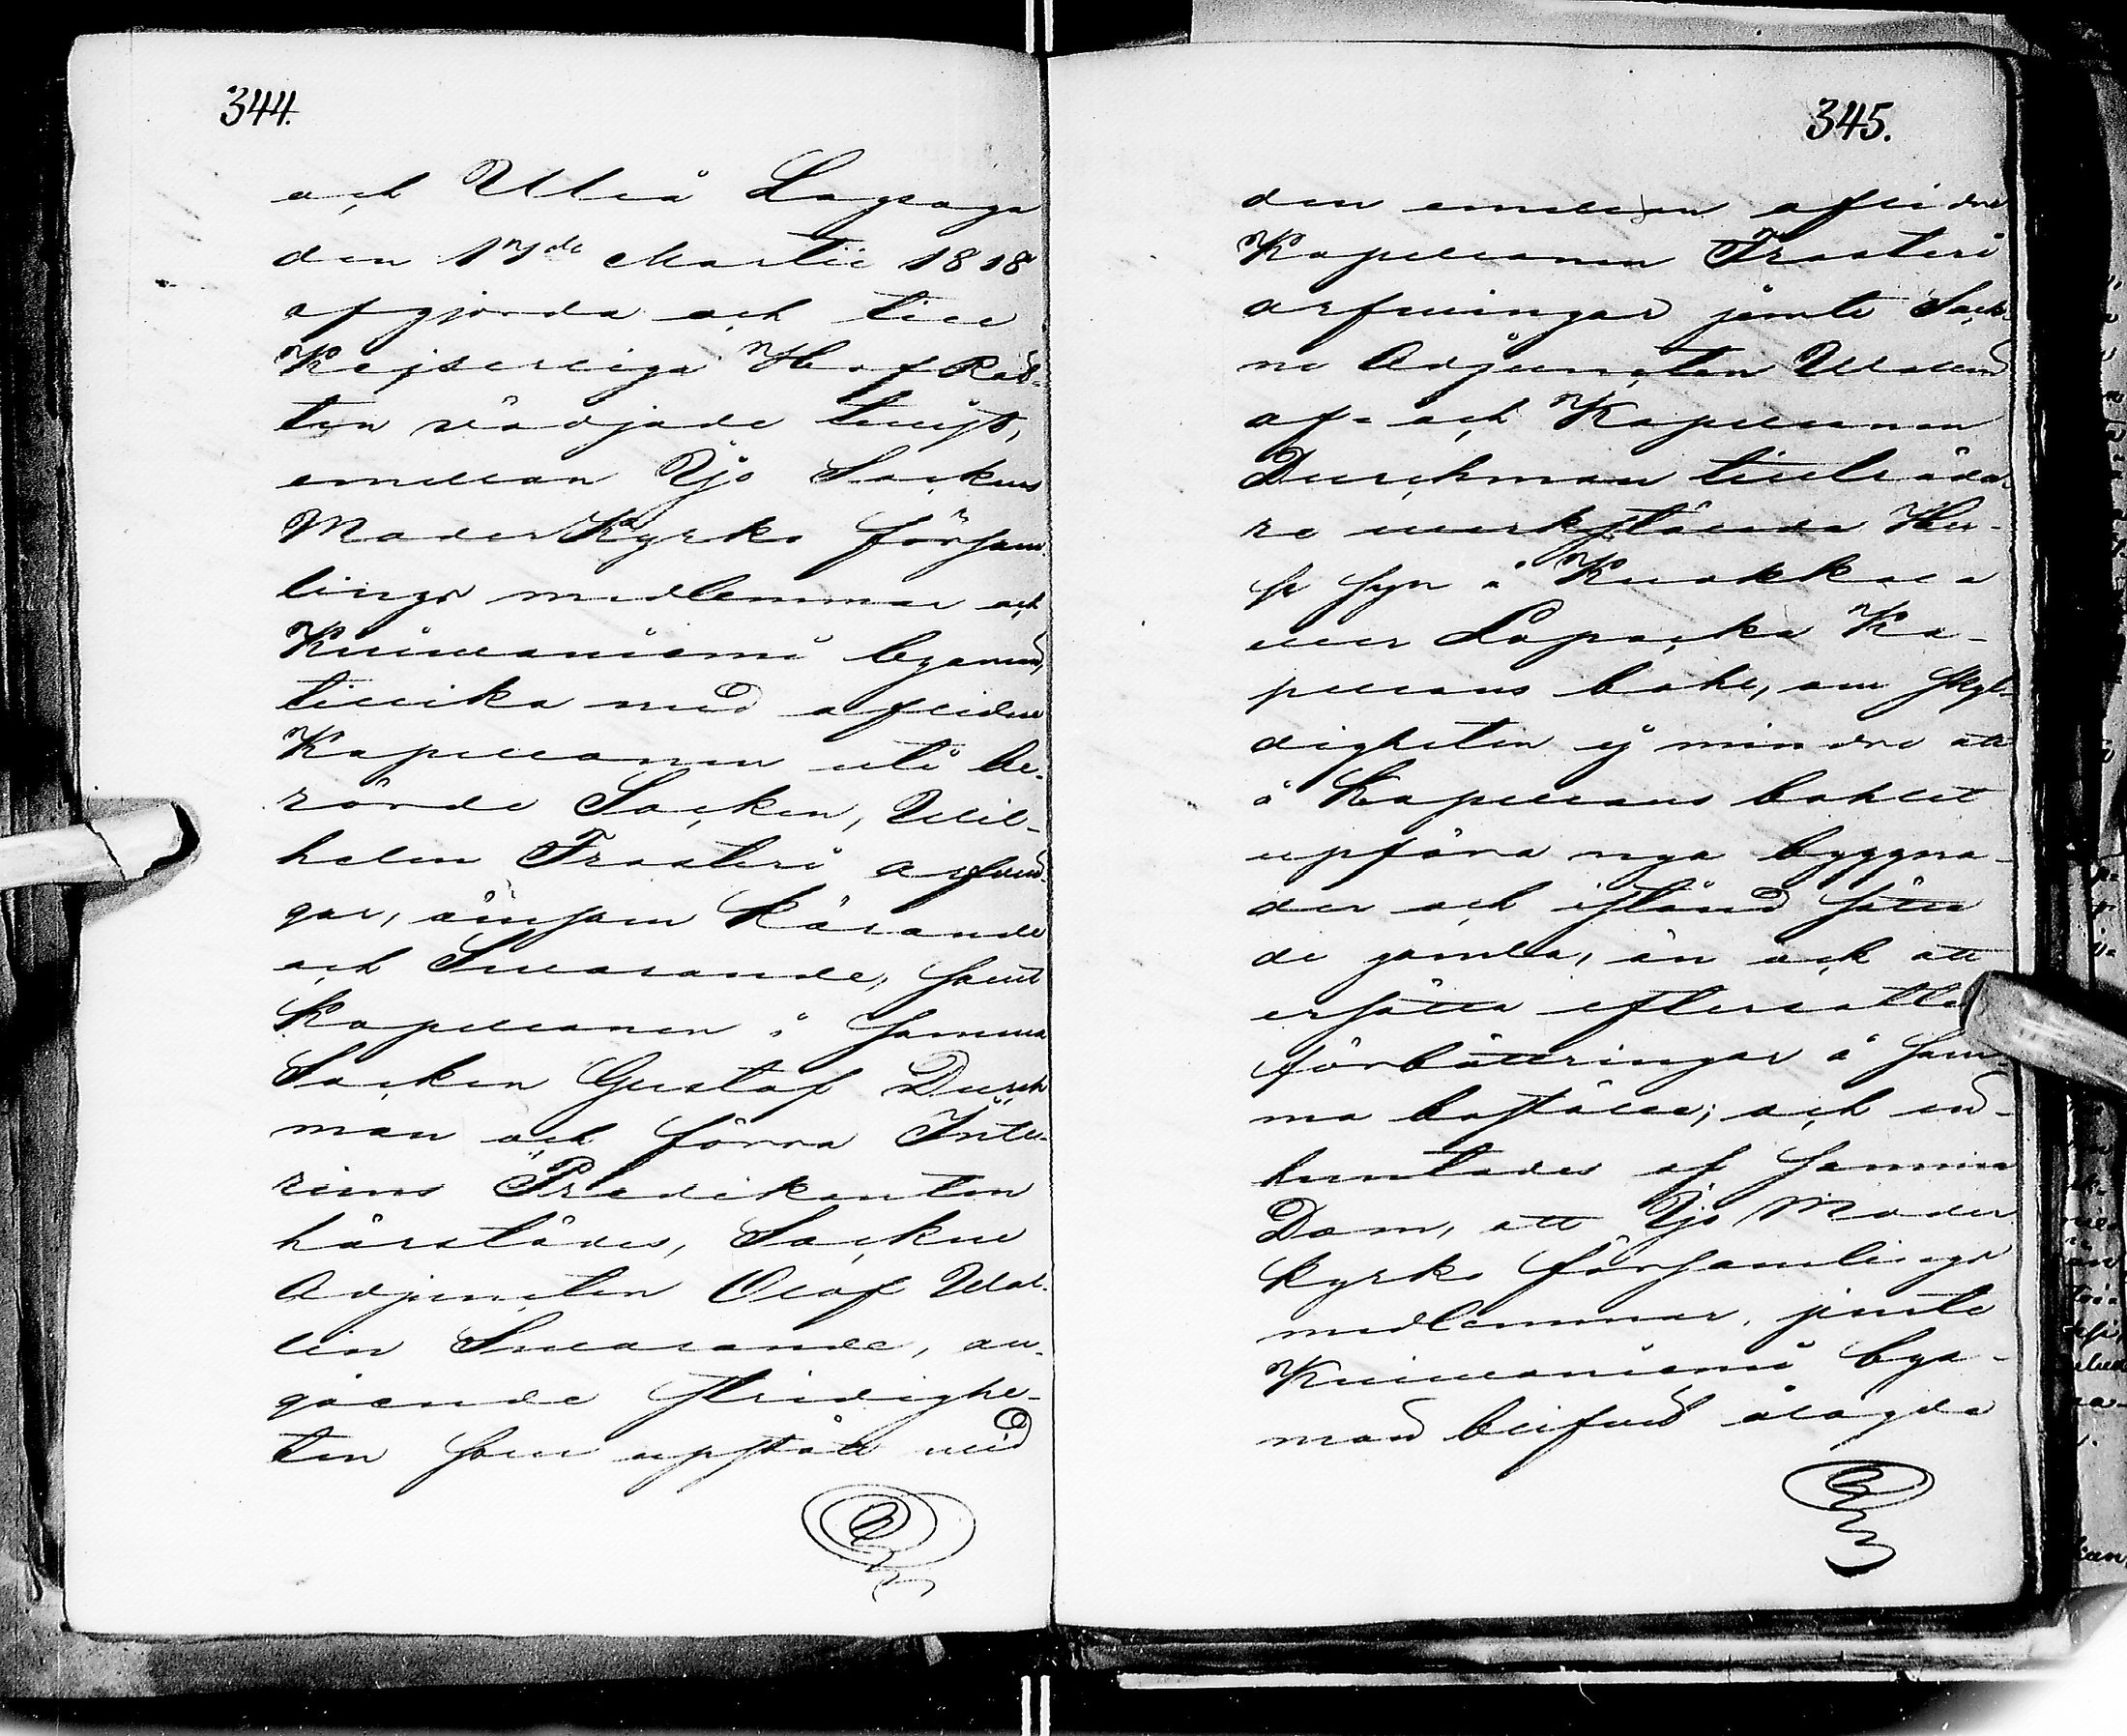 344.
och Uleå Lagsaga
den 17de Martii 1818
afgjorda och till
Kejserliga Hof Rät-
ten vädjade tvist,
emellan Ijo Sockens
Moder Kyrko försam-
lings medlemmar och
Kuivaniemi byamän,
tillika med aflidne
Kapellanen uti be-
rörde Socken, Wil-
helm Frosteri arfvin-
gar, ömsom Kärande
och Svarande, samt
Kapellanen i samma
Socken Gustaf Durch-
man och förra Inte-
rims Predikanten
härstädes, Sockne
Adjuncten Olof Wal-
lin Svarande, an-
gående stridighe-
ten som upstått vid
345.
den emellan aflidne
Kapellanen Frosteri
arfvingar jämte Sock-
ne Adjuncten Wallin
af- och Kapellanen
Durchman tillträda-
re verkstälda Hu-
se syn å Kuokkala
eller Lapocka Ka-
pellans bohl, om skyl-
digheten ej mindre att
å Kapellans bohlet
upföra nya byggna-
der och istånd sätta
de gamla, än ock att
ersätta eftersatte
förbättringar å sam-
ma boställe; och in-
hemtades af samma
Dom, att Ijo Moder
kyrko församlings
medlemmar, jemte
Kuivaniemi bya-
män blifvit ålagde